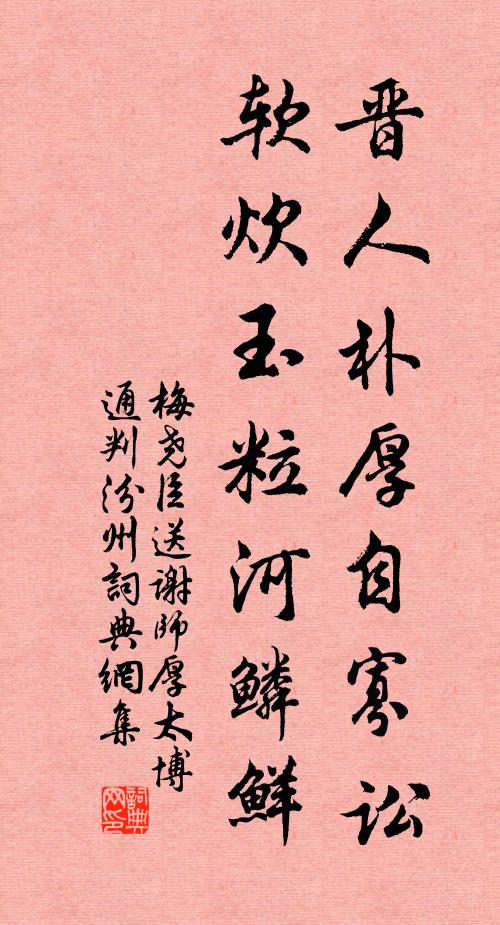 晋人朴厚自寡讼
软炊玉粒河鳞鲜
梅尧臣送谢師厚太博
通判汾州詞典網集
詞典网印